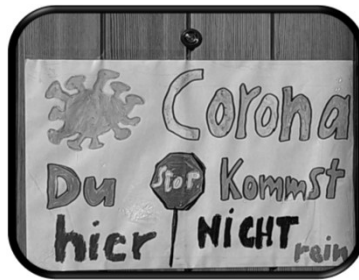 Corona
Du Stop Kommst
hier NICHT rein